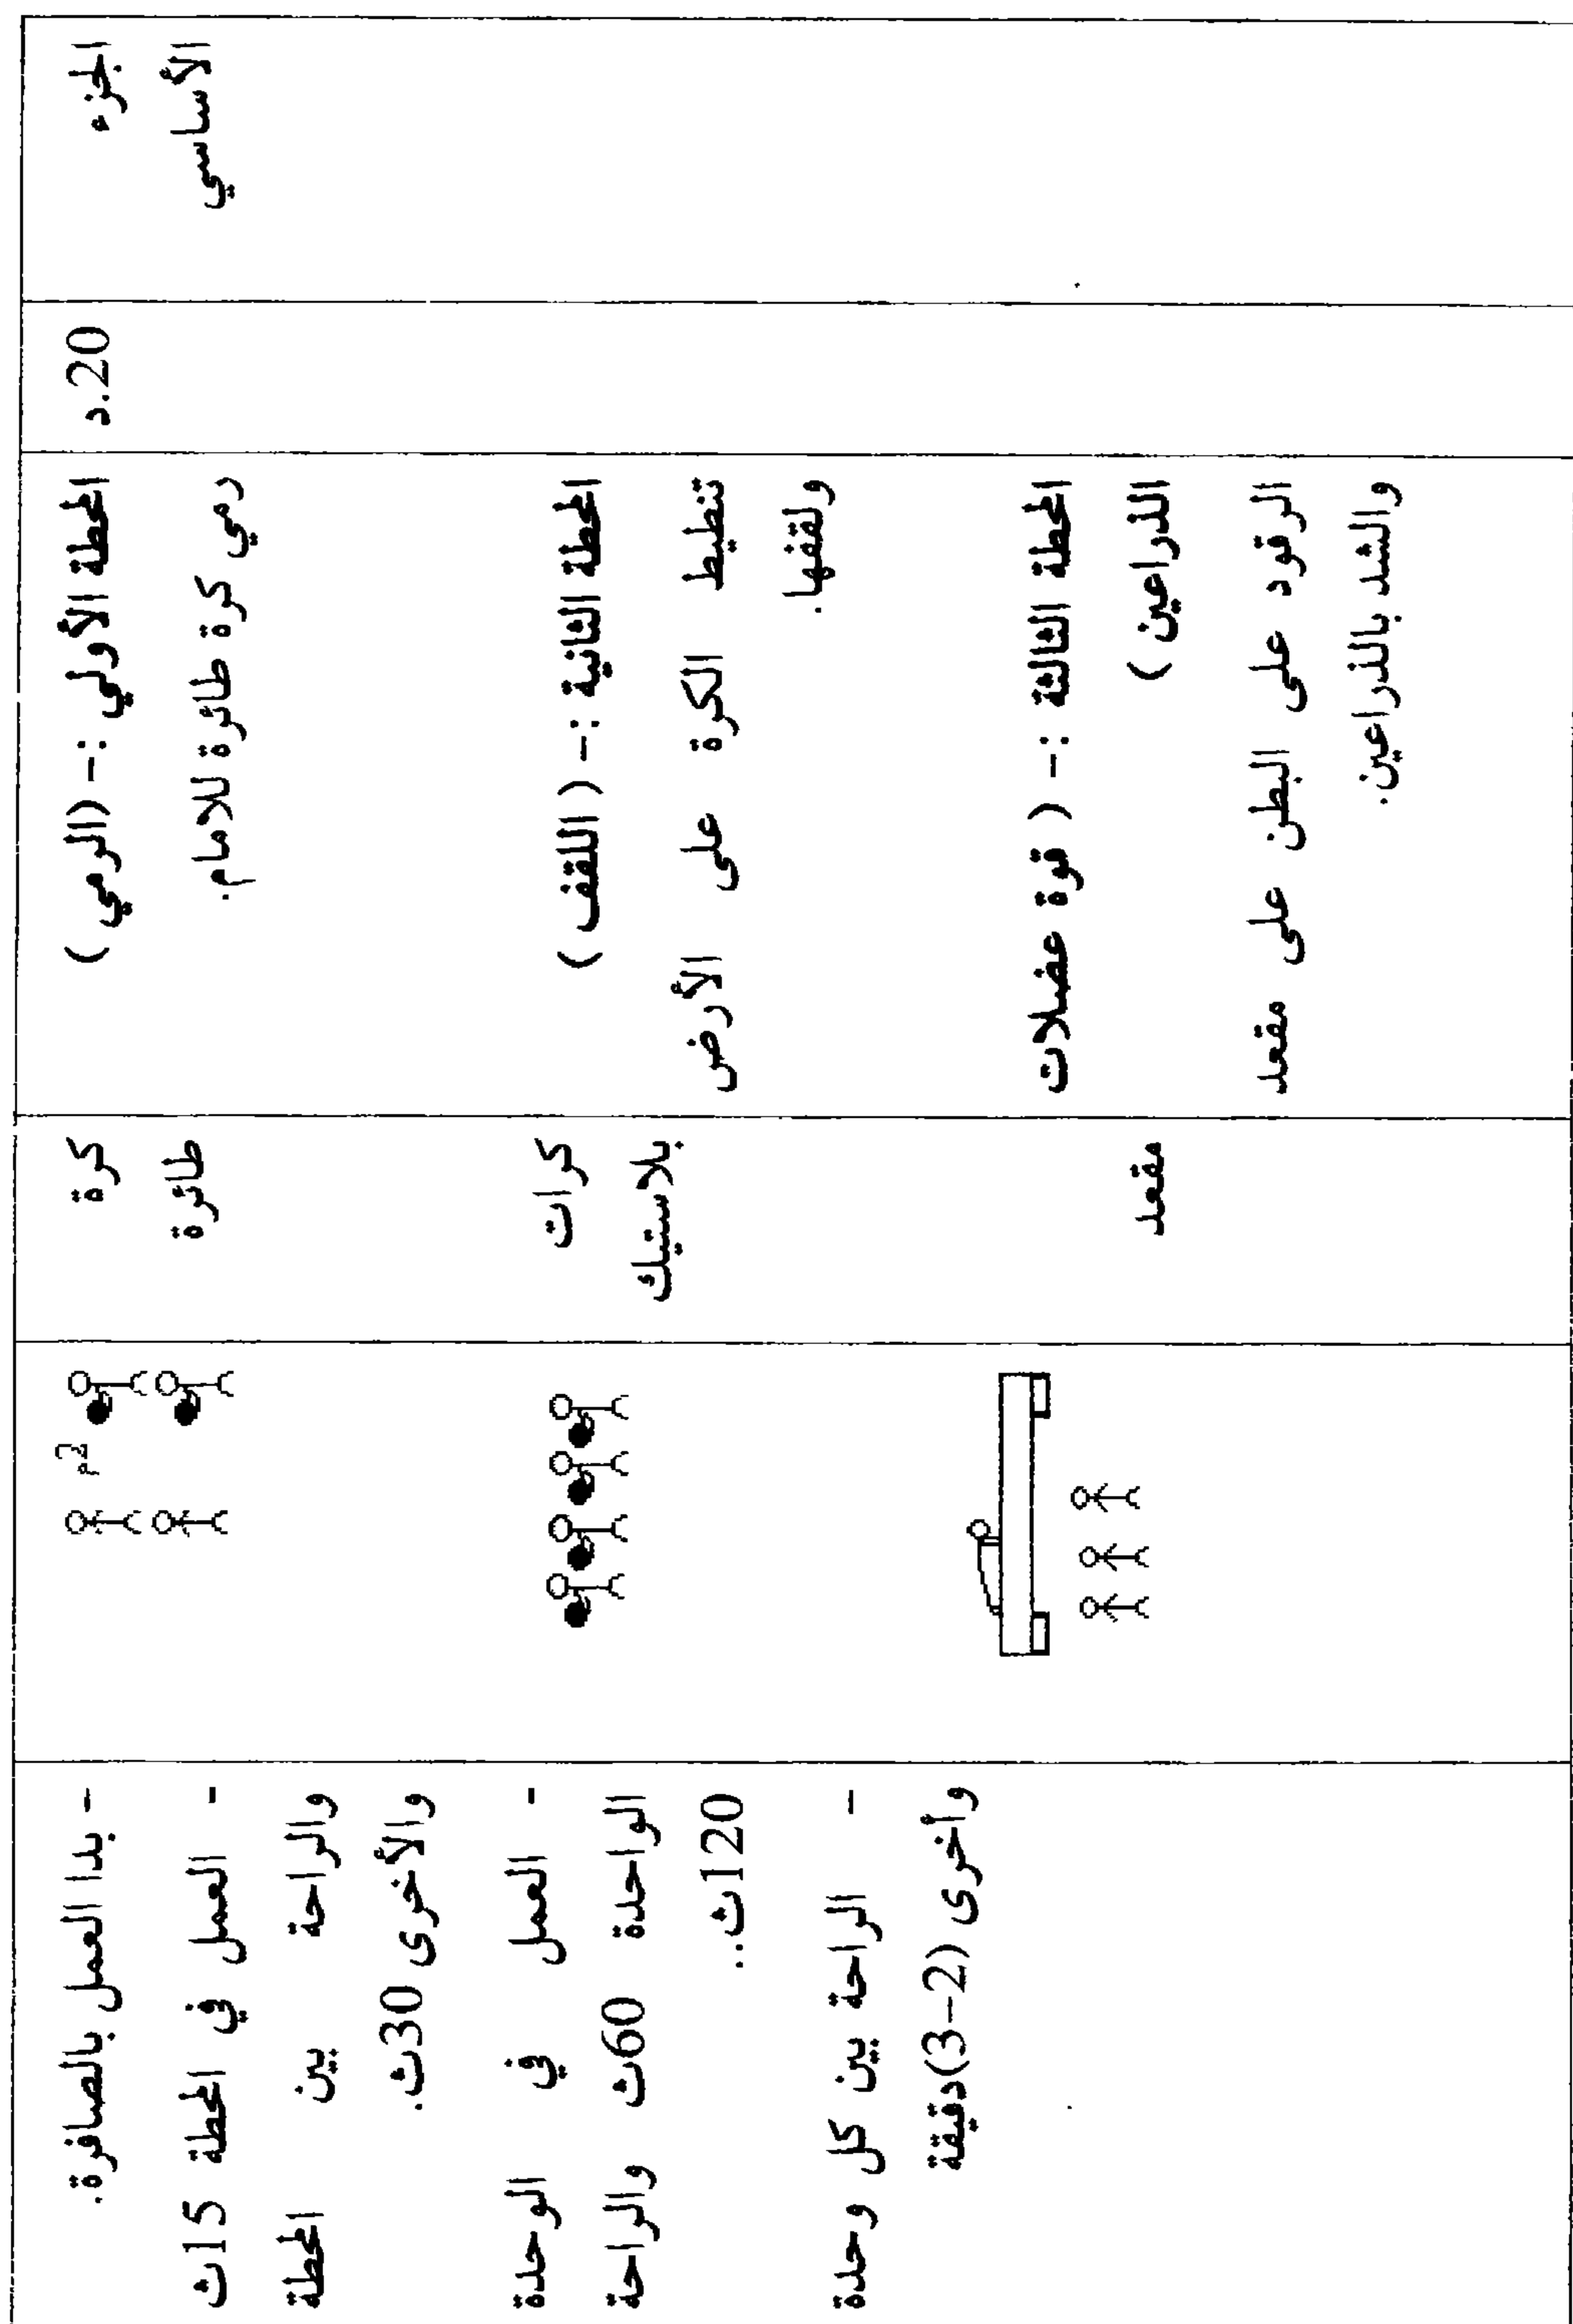 الجزء
الأساسي
20.د
المحطة الأولي :- (الرمي )
رمي كرة طائرة للامام.
المحطة الثانية :- ( اللقف )
تنطيط الكرة على الأرض
ولقفها.
المحطة الثالثة :- ( قوة عضلات
الذراعين )
الرقود على البطن على مقعد
والشد بالذراعين.
كرة
طائرة
كرات
بلاستيك
مقعد
2م
- بدا العمل بالصافرة.
- العمل في المحطة 15ث
والراحة بين المحطة
والأخرى 30ث.
- العمل في الوحدة
الواحدة 60ث والراحة
120ث..
- الراحة بين كل وحدة
وأخرى (2-3)دقيقة